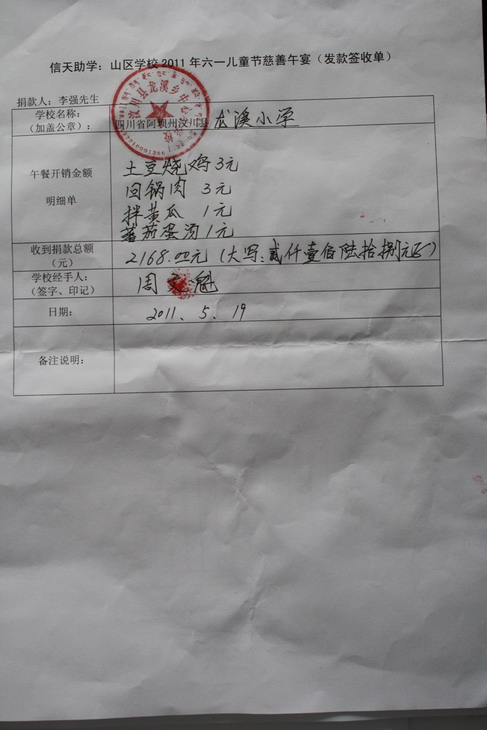 信天助学：山区学校 2011 年六一儿童节慈善午宴（发款签收单）
捐款人：李强先生
学校名称：
（加盖公章）：
四川省阿坝州汶川县 龙溪小学
汶川县龙溪乡中心
午餐开销金额
明细单
土豆烧鸡 3元
回锅肉 3元
拌黄瓜 1元
蕃茄蛋汤 1元
收到捐款总额
（元）
2168.00元（大写：贰仟壹佰陆拾捌元正）
学校经手人：
（签字、印记）
周 魁
日期：
2011、5、19
备注说明：